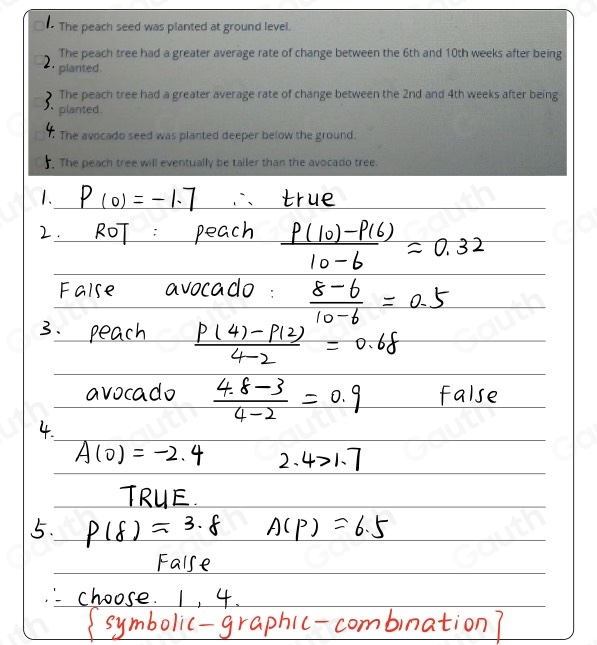 1. The peach seed was planted at ground level.
2. The peach tree had a greater average rate of change between the 6th and 10th weeks after being
planted.
3. The peach tree had a greater average rate of change between the 2nd and 4th weeks after being
planted.
4. The avocado seed was planted deeper below the ground.
5. The peach tree will eventually be taller than the avocado tree.
1. P(0) = -1.7 ∴ true
2. ROT : peach P(10)-P(6) / 10-6 ≈ 0.32
False avocado : 8-6 / 10-6 = 0.5
3. peach P(4)-P(2) / 4-2 = 0.68
avocado 4.8-3 / 4-2 = 0.9 False
4.
A(0) = -2.4 2.4>1.7
TRUE.
5. P(8) ≈ 3.8 A(P) = 6.5
False
∴ choose. 1, 4.
{symbolic-graphic-combination}
Gauth